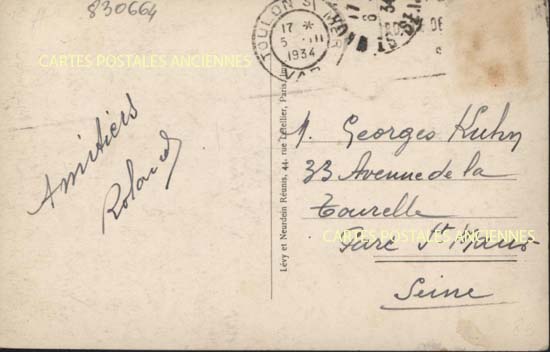 830664
TOULON S/ MER
17 *
5
1934
VAR
CARTES POSTALES ANCIENNES
Amitiers
Roland
Lévy et Neurdein Réunis, 44, rue Letellier, Paris, Imp.
M. Georges Kuhn
33 Avenue de la
Tourelle
CARTES POSTALES ANCIENNES
Parc St Maur
Seine